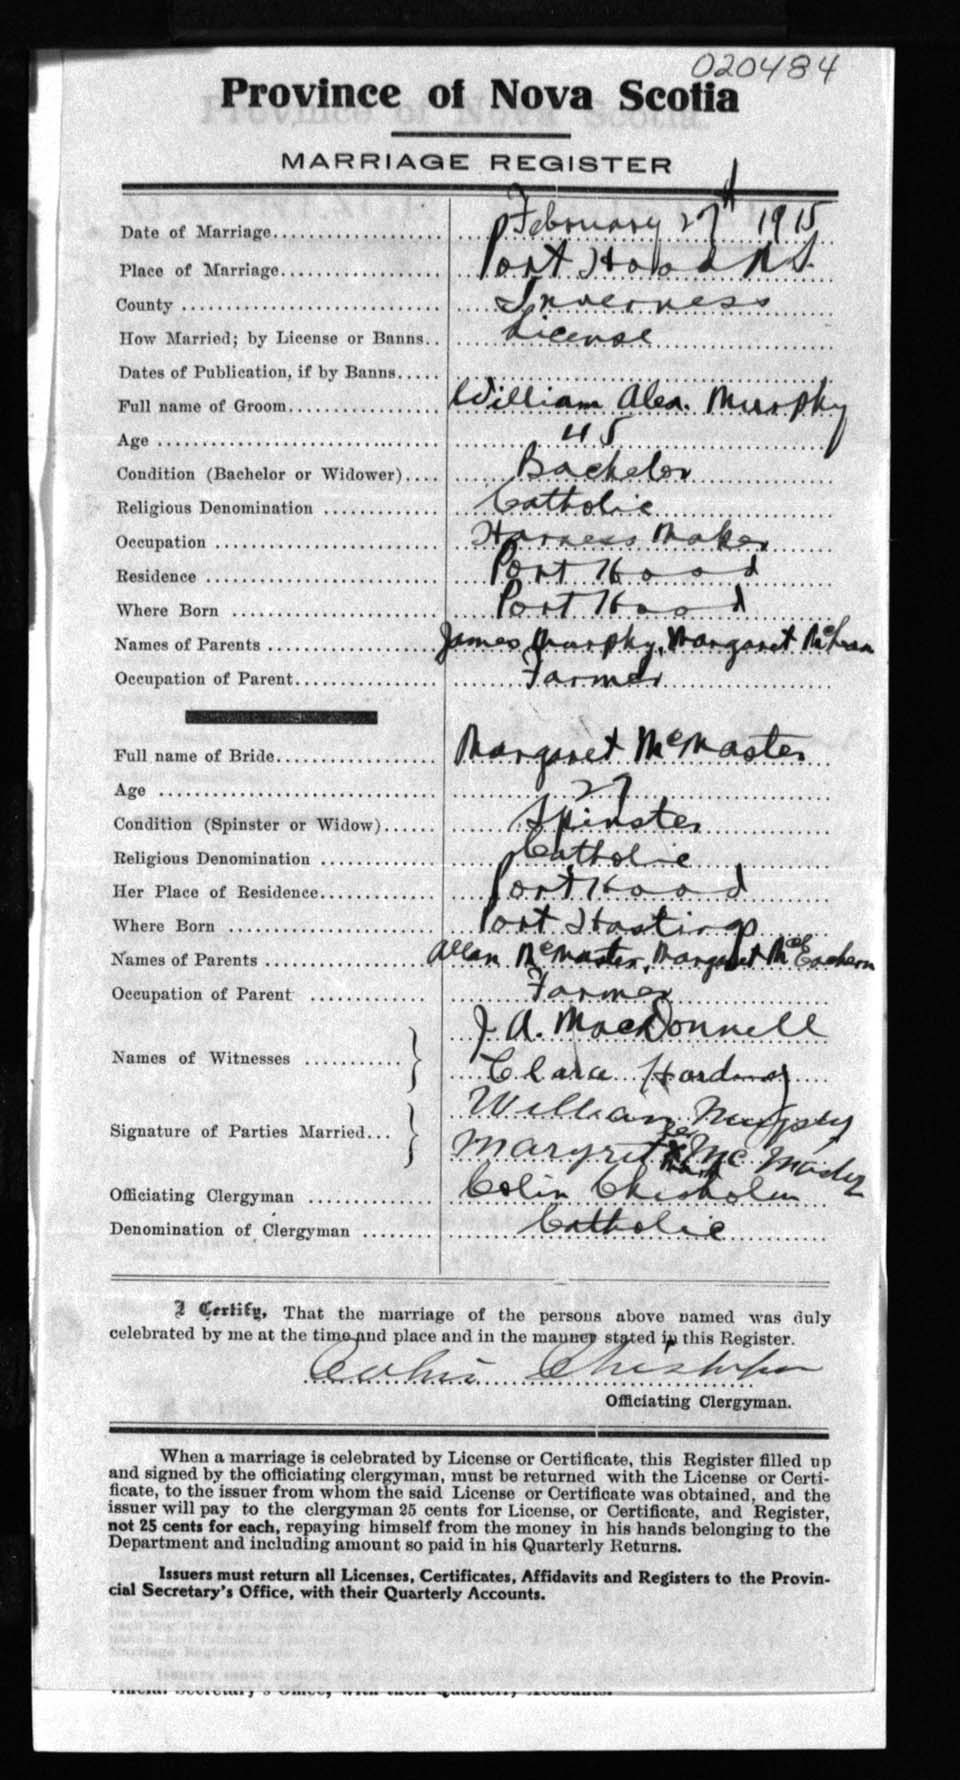 020484
Province of Nova Scotia
MARRIAGE REGISTER
Date of Marriage.................... February 27th 1915
Place of Marriage.................. Port Hood N S.
County ............................. Inverness
How Married; by License or Banns.. License
Dates of Publication, if by Banns.....
Full name of Groom.................. William Alex. Murphy
Age ................................ 45
Condition (Bachelor or Widower).... Bachelor
Religious Denomination ............. Catholic
Occupation ......................... Harness Maker
Residence .......................... Port Hood
Where Born ........................ Port Hood
Names of Parents ................... James Murphy, Margaret McLean
Occupation of Parent................ Farmer
Full name of Bride.................. Margaret McMaster
Age ................................ 27
Condition (Spinster or Widow)...... Spinster
Religious Denomination ............. Catholic
Her Place of Residence.............. Port Hood
Where Born ........................ Port Hastings
Names of Parents ................... Allan McMaster, Margaret McEachern
Occupation of Parent ............. Farmer
J A. MacDonnell
Names of Witnesses ...........
Clara Harding
William Murphy
Signature of Parties Married...
Margret Mc Master
Officiating Clergyman ............. Colin Chisholm
Denomination of Clergyman ........ Catholic
I Certify, That the marriage of the persons above named was duly
celebrated by me at the time and place and in the manner stated in this Register.
Colin Chisholm
Officiating Clergyman.
When a marriage is celebrated by License or Certificate, this Register filled up
and signed by the officiating clergyman, must be returned with the License or Certi-
ficate, to the issuer from whom the said License or Certificate was obtained, and the
issuer will pay to the clergyman 25 cents for License, or Certificate, and Register,
not 25 cents for each, repaying himself from the money in his hands belonging to the
Department and including amount so paid in his Quarterly Returns.
Issuers must return all Licenses, Certificates, Affidavits and Registers to the Provin-
cial Secretary's Office, with their Quarterly Accounts.
vincial Secretary's Office, with their Quarterly Accounts.